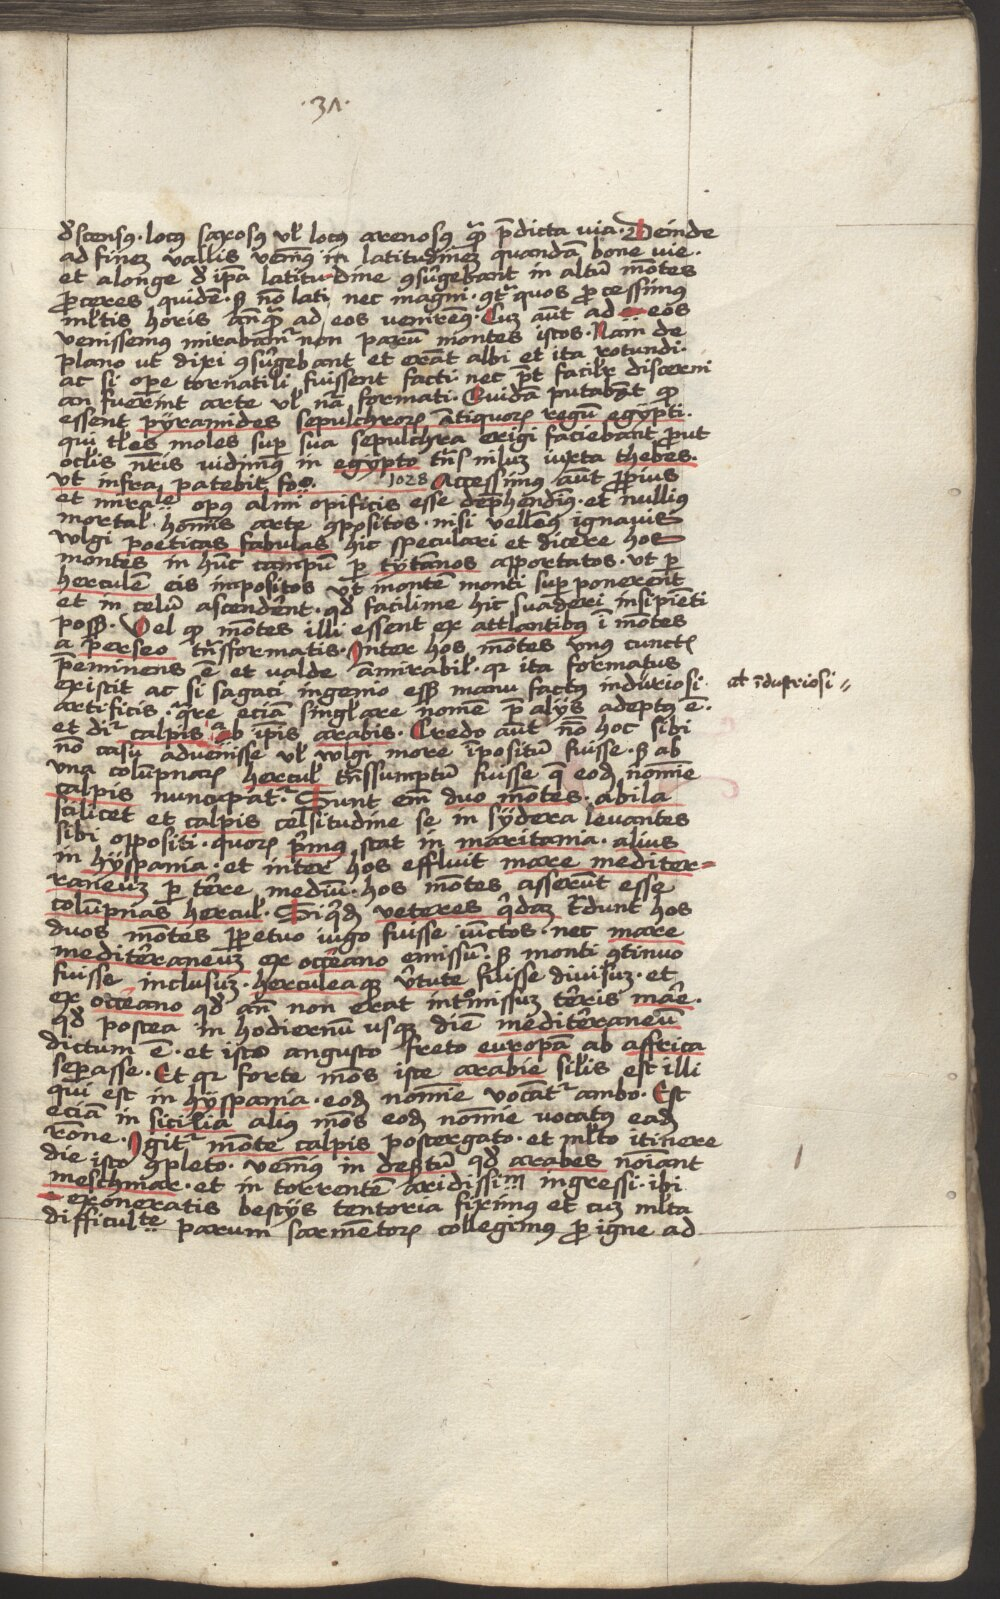 ·31·
dͦscensꝰ · locꝰ saxosꝰ vl̕ locꝰ arenosꝰ qͣ p̄dicta via · Deinde
ad finez vallis venimꝰ in latitudinez quandā bone vie ·
et alonge d̕ ip̄a latitudine ꝯsurgebant in altū mōtes
ꝓceres quidē · sꝫ nō lati nec magni · ꝯtͣ quos ꝓcessimꝰ
ml̕tis horis anq̄ ad eos veniremꝰ · Cuz aūt ad eos
venissemus mirabamur non parū montes istos · Nam de
plano ut dixi ꝯsurgebant et erāt albi et ita rotundi ·
ac si oꝑe tornatili fuissent facti · nec pͦt facilr̕ discerni
an fuerint arte vl̕ nͣ formati · Quidā putabāt ꝙ
essent pÿramides sepulchroꝝ ātiquoꝝ regū egypti ·
qui tl̕es moles suꝑ sua sepulchra erigi faciebant ꝓut
ocl̕is nr̄is vidimꝰ in egypto tn̄s niluz iuxta thebes ·
vt infra patebit fo · 1028 Accessimꝰ aūt ꝓpius
et mirale opꝰ almi opificis esse dep̄hendimꝰ · et nulliꝰ
mortal̕ hoīnis arte ꝯpositos · nisi vellemꝰ ignauis
wlgi poeticas fabulas hic speculari et dicere hos
montes in hūc campū ꝑ tytanos apportatos · vt ꝑ
herculē eis impositos vt montē monti suꝑponerent
et in celū ascenderēt · qd̕ facilime hic suaderi insipiēti
possꝫ · Vel ꝙ mōtes illi essent ex attlantibꝰ ī mōtes
a perseo tn̄sformatis · Inter hos mōtes vnꝰ cunctꝭ
p̄eminens ē et valde āmirabil̕ · qꝛ ita formatus
existit ac si sagaci ingenio essꝫ manu factꝰ induriosi · al̕ īdustriosi
artificis · qͣre eciā singl̕are nomē p̄ alÿs adeptꝰ ē ·
et dr̄ calpis ab ip̄is arabis · Credo aūt nō hoc sibi
nō casu aduenisse vl̕ wlgi more īpositū fuisse · sꝫ ab
vna colūpnaꝝ hercul̕ tn̄ssumptū fuisse q̄ eodē nomīe
calpis nuncupatᷣ · Sunt em̄ duo mōtes · abila
scilicet et calpis celsitudine se in sÿdera leuantes
sibi oppositi · quoꝝ p̕mꝰ stat in maritania · alius
in hÿspania · et inter hos effluit mare mediter-
raneuz ꝑ terre mediū · hos mōtes asserūt esse
colūpnas hercul̕ · Siq̕dē veteres q̕daz tͣdunt hos
duos mōtes ꝑpetuo iugo fuisse iūctos · nec mare
mediterraneuz ex occeano emissū · sꝫ monti ꝯtinuo
fuisse inclusuz · herculeaqꝫ v̕tute fuisse diuisuz · et
ex occeano qd̕ an̄ non erat intͦmissuz terris mare ·
qd̕ postea in hodiernū usqꝫ diē mediterraneū
dictum ē · et isto angusto freto europā ab affrica
seꝑasse · Et qꝛ forte mōs iste arabie sil̕is est illi
qui est in hÿspania · eodē nomīe vocātᷣ ambo · Est
eciā in sicilia aliꝰ mōs eodē nomīe vocatꝰ eadē
rōne · Igitᷣ mōte calpis postergato · et ml̕to itinere
die isto ꝯpleto · venimꝰ in desertū qd̕ arabes noīant
meschmar · et in torrentē aridissim̄ ingressi · ibi
exoneratis bestÿs tentoria fiximꝰ et cuz ml̕ta
difficulte parum sarmētoꝝ collegimꝰ ꝓ igne ad